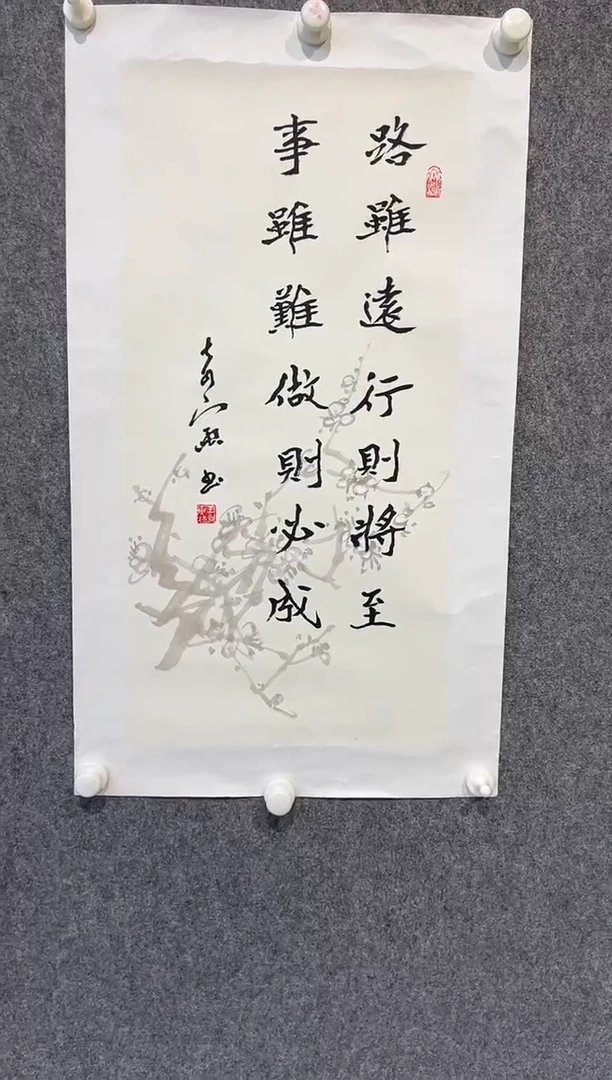 路雖遠行則將至
事雖難做則必成
书